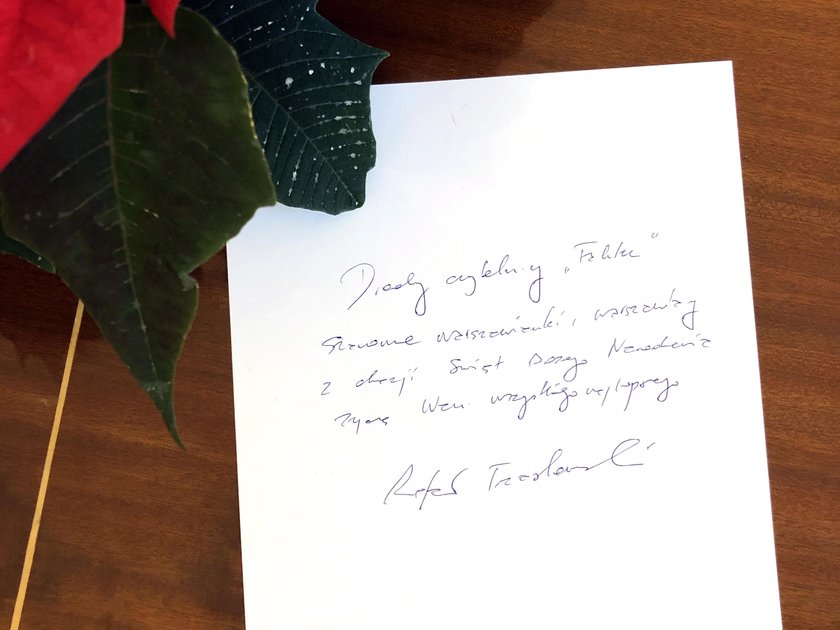 Drodzy czytelnicy „Faktu"
Szanowne warszawianki, warszawiacy
z okazji Świąt Bożego Narodzenia
życzę Wam wszystkiego najlepszego
Rafał Trzaskowski